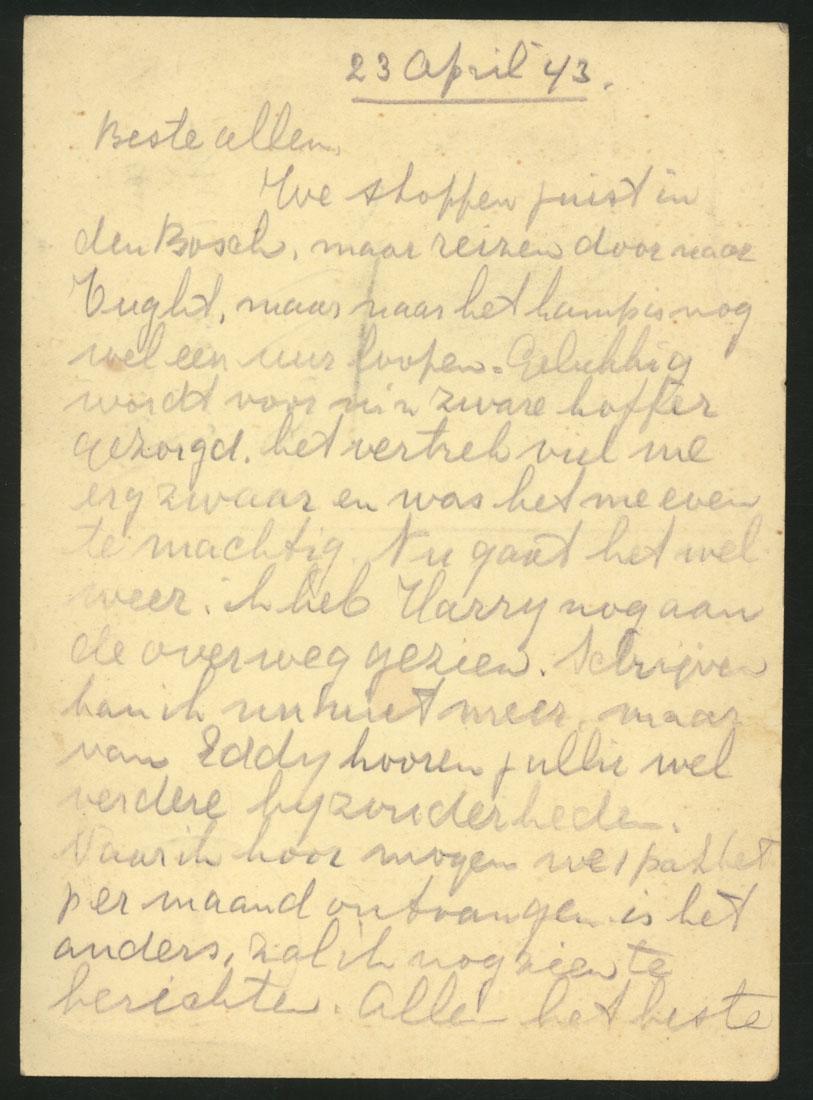 23 April '43.
Beste allen,
We stoppen juist in
den Bosch, maar reizen door naar
Vught, maar naar het kamp is nog
wel een uur loopen. Gelukkig
wordt voor m'n zware koffer
gezorgd. het vertrek viel me
erg zwaar en was het me even
te machtig. Nu gaat het wel
weer. ik heb Harry nog aan
de overweg gezien. Schrijven
kan ik nu niet meer, maar
van Eddy hooren jullie wel
verdere byzonderheden.
Naar ik hoor mogen we 1 pakket
per maand ontvangen is het
anders, zal ik nog zien te
berichten. Allen het beste